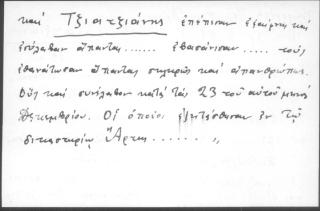 καὶ Τζιατζιάνης ἐπέπεσαν ἐξαίφνης καὶ
συνέλαβον ἅπαντας ...... ἐβασάνισαν ..... τοὺς
ἐθανάτωσαν ἅπαντας σκληρῶς καὶ ἀπανθρώπως.
Οὓς καὶ συνέλαβον κατὰ τὰς 23 τοῦ αὐτοῦ μηνὸς
Δεκεμβρίου. Οἱ ὁποῖοι ἐξητάσθησαν ἐν τῷ
δικαστηρίῳ Ἄρτης ...... „